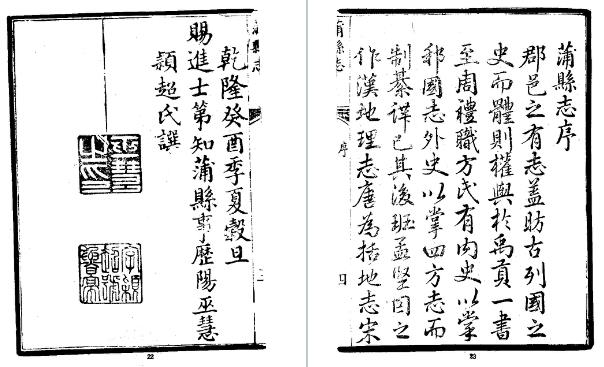 蒲縣志序
郡邑之有志盖昉古列國之
史而體則權輿於禹貢一書
至周禮職方氏有内史以掌
邦國志外史以掌四方志而
制綦詳已其後班孟堅因之
作漢地理志唐為括地志宋
蒲縣志
序
四
23
蒲縣志
乾隆癸酉季夏穀旦
賜進士第知蒲縣事歷陽巫慧
頴超氏譔
巫慧之印
字頴超號
22